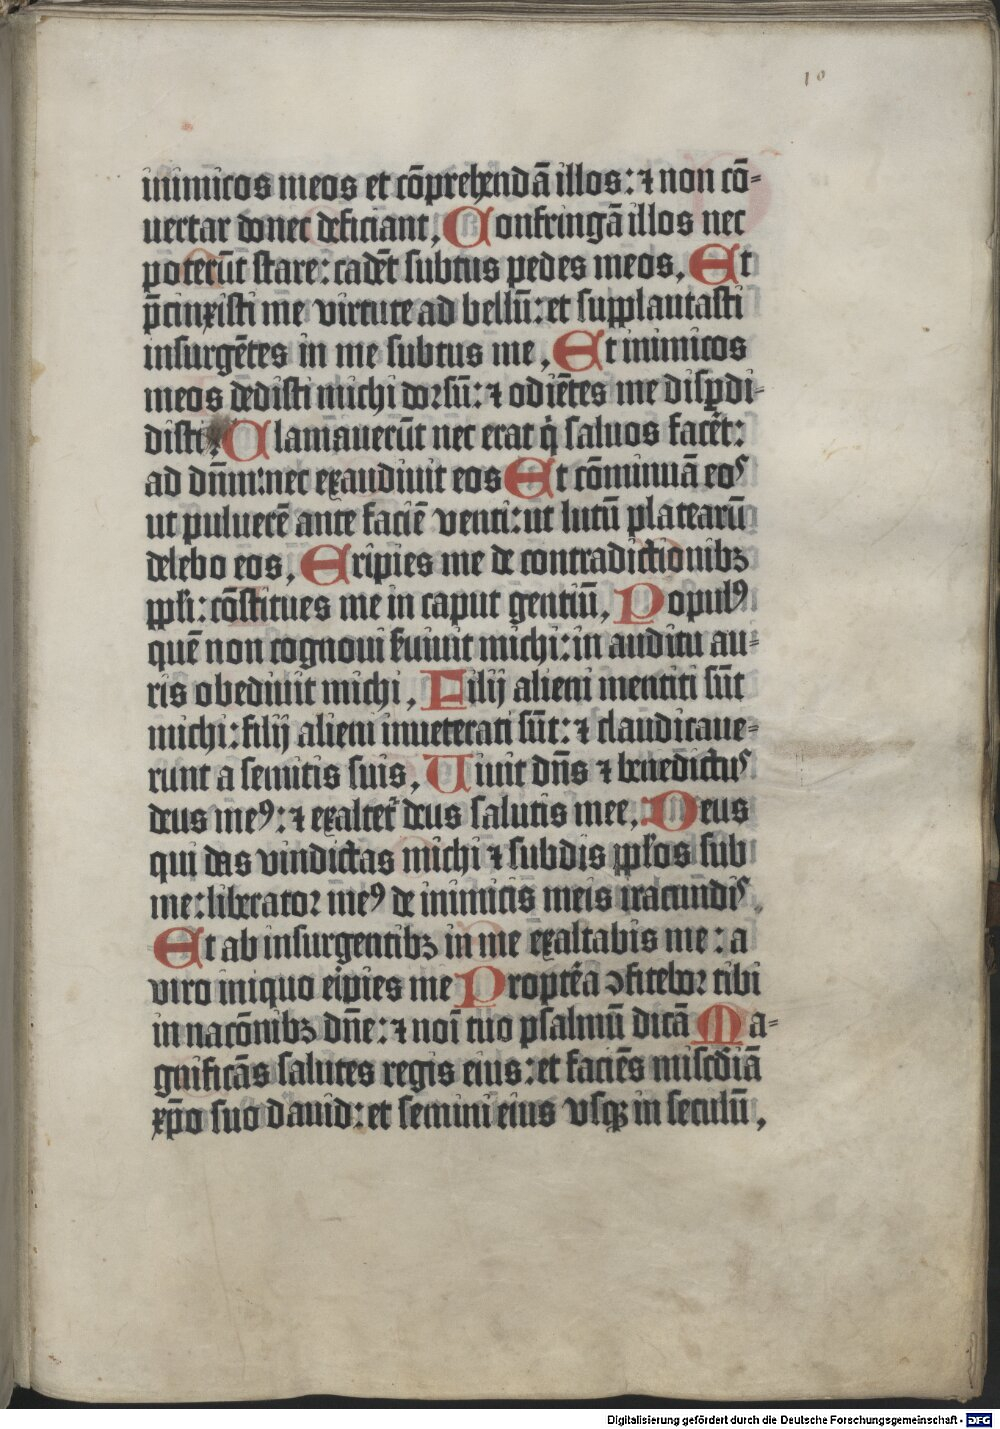 10
inimicos meos et cōprehendā illos: ⁊ non cō-
uertar donec deficiant, Confringā illos nec
poterūt stare: cadēt subtus pedes meos, Et
p̄cinxisti me virtute ad bellū: et supplantasti
insurgētes in me subtus me, Et inimicos
meos dedisti michi dorsū: ⁊ odiētes me disꝑdi-
disti, Clamauerūt nec erat q̇ saluos facēt:
ad dn̄m: nec exaudiuit eos Et cōminuā eos
ut puluerē ante faciē venti: ut lutū platearū
delebo eos, Eripies me de contradictionibꝫ
ppl̄i: cōstitues me in caput gentiū, Populꝰ
quē non cognoui s̄uiuit michi: in auditu au-
ris obediuit michi, Filij alieni mentiti sūt
michi: filij alieni inueterati sūt: ⁊ claudicaue-
runt a semitis suis, Uiuit dn̄s ⁊ benedictus
deus meꝰ: ⁊ exaltet᷑ deus salutis mee, Deus
qui das vindictas michi ⁊ subdis ppl̄os sub
me: liberator meꝰ de inimicis meis iracundis,
Et ab insurgentibꝫ in me exaltabis me: a
viro iniquo eripies me Propt̄ea ↄfitebor tibi
in nacōnibꝫ dn̄e: ⁊ noī tuo psalmū dicā Ma-
gnificās salutes regis eius: et faciēs misc̄diā
xp̄o suo dauid: et semini eius vsqꝫ in seculū,
Digitalisierung gefördert durch die Deutsche Forschungsgemeinschaft - DFG